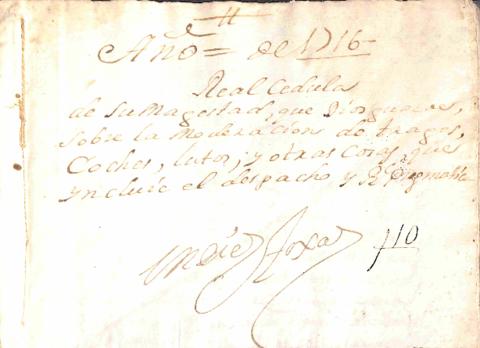 Año = de 1716
Real Cedula
de su Magestad, que Dios guarde,
sobre la moderacion de trages,
Coches, lutos, y otras cosas, que
yncluie el despacho y Rl Pragmatica
en diez foxas f 10